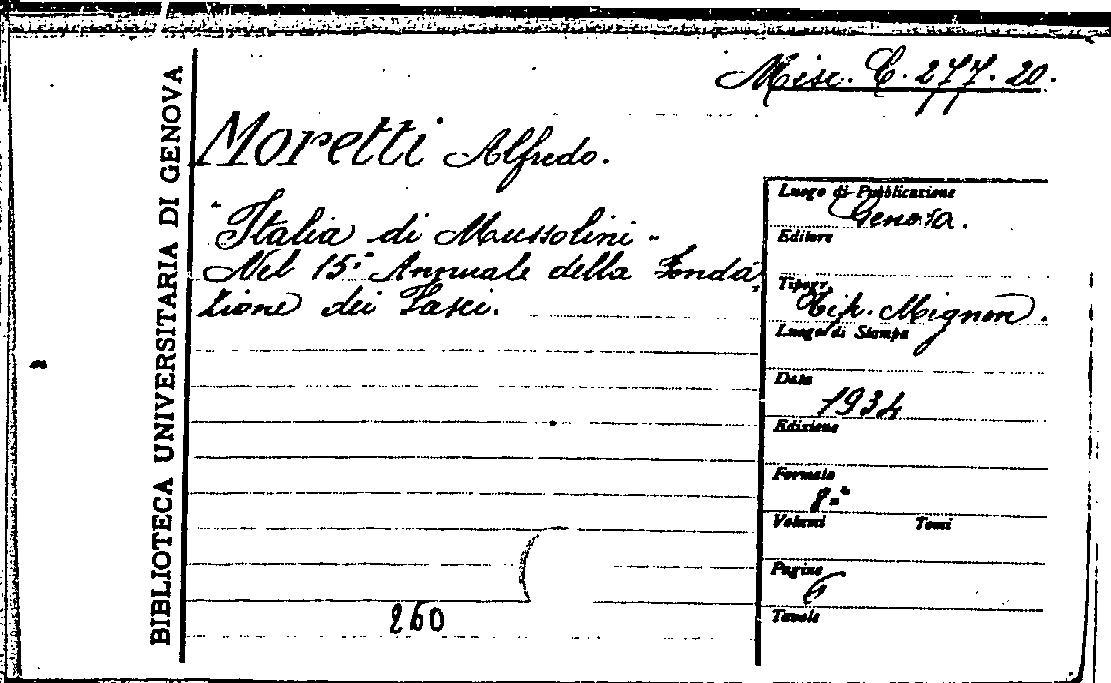 Misc. C. 277. 20.
BIBLIOTECA UNIVERSITARIA DI GENOVA
Moretti Alfredo.
"Italia di Mussolini"
Nel 15° Annuale della Fonda
zione dei Fasci.
260
Luogo di Pubblicazione
Genova.
Editore
Tipogr.
Tip. Mignon.
Luogo di Stampa
Data
1934
Edizione
Formato
8°
Volumi Tomi
Pagine
6
Tavole